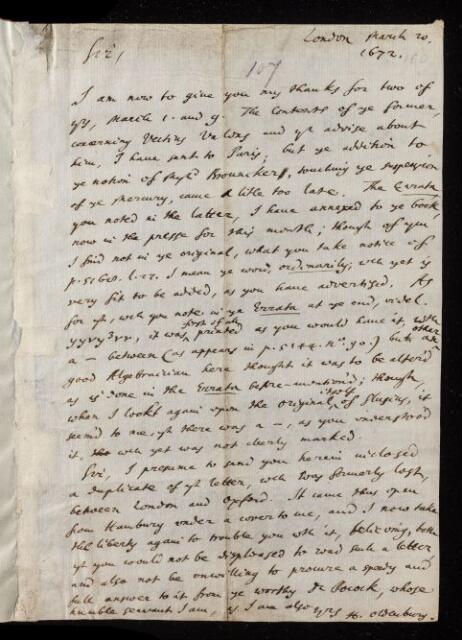 London March 20.
1672.
Sir,
107
I am now to give you my thanks for two of
yrs, March 1. and 9. The contents of ye former,
concerning Vectius Valens and yr advise about
him, I have sent to Paris; but ye addition to
ye notion of Myld Brouncker, touching ye suspension
of ye Mercury, came a litle too late. The Errata
you noted in the latter, I have annexed to ye book,
now in the presse for this month; though of ym
I find not in ye original, what you take notice of
l. 22. I mean ye word, ordinarily; wch yet is
very fit to be added, as you have advertised. As
for yt, wch you note in ye Errata at ye end, videl.
it was first of all printed as you would have it, with
a – between (as appears in p. 5144. no. 90.) but
other
good Algebraician here thought it was to be alter'd
as is done in the Errata before-mentioned; though,
when I lookt again upon the original itself of Slusius, it
seem'd to me, yt there was a –, as you understood
it, wch yet was not cleerly marked.
Sir, I presume to send you herein inclosed
a duplicate of yt letter, wch was formerly lost,
between London and Oxford. It came thus open
from Hamburg under a cover to me, and I now take
the liberty again to trouble you wth it, believing, both
yt you would not be displeased to read such a letter,
and also not be unwilling to procure a speedy and
full answer to it from ye worthy Dr Pocock, whose
humble servant I am, as I am also yrs H. Oldenburg.